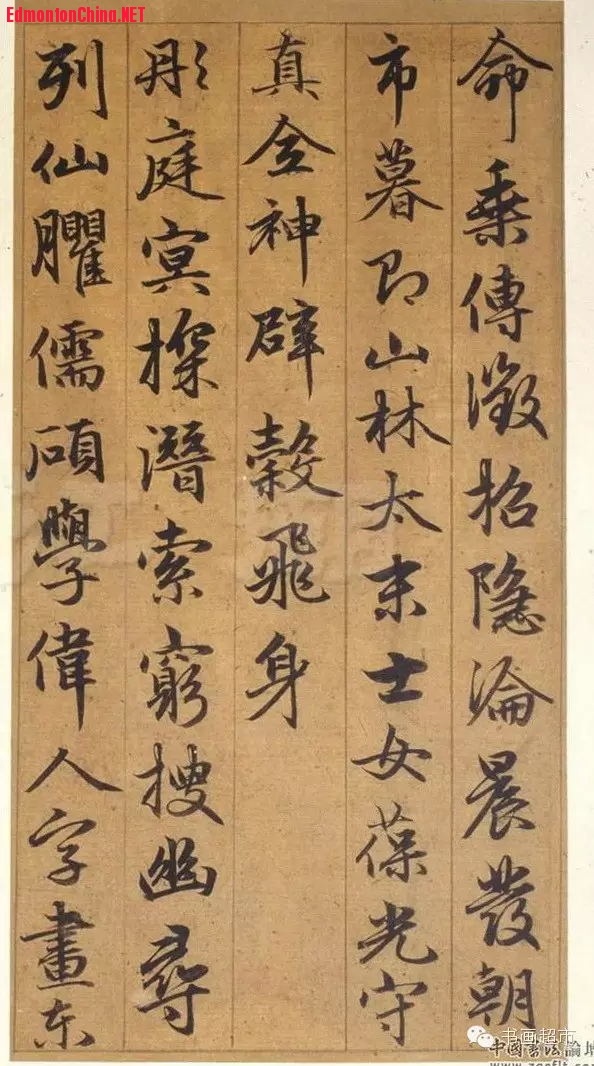 EdmontonChina.NET
命乘傳徵招隱淪晨發朝
市暮即山林太末士女葆光守
真全神辟穀飛身
彤庭冥探潛索窮搜幽尋
列仙臞儒碩學偉人字畫東
书画超市
中國書法論壇